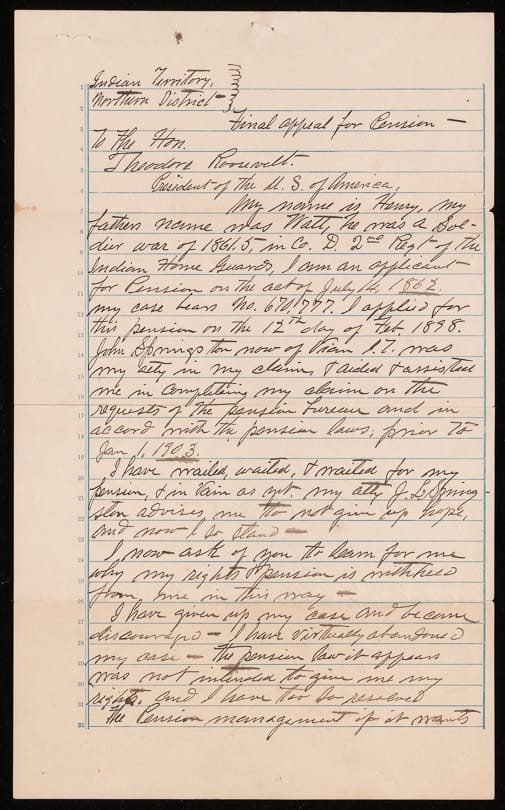 Indian Territory,
Northern District
Final appeal for Pension —
To The Hon.
Theodore Roosevelt.
President of the U. S. of America,
My name is Henry, my
fathers name was Watt, he was a Sol-
dier war of 1861.5, in Co. D. 2nd Regt of the
Indian Home Guards, I am an applicant
for Pension on the act of July 14, 1862.
my case bears No. 670,777. I applied for
this pension on the 12th day of Feb 1898.
John Springston now of Vian I.T. was
my atty in my claim, & aided & assisted
me in completing my claim on the
requests of the pension bureau and in
accord with the pension laws, prior to
Jan 1, 1903.
I have waited, waited, & waited for my
pension, & in vain as yet. my atty J. L. Springs-
ston advises, me to not give up hope,
and now I so stand —
I now ask of you to learn for me
why my rights & pension is withheld
from me in this way —
I have given up my case and become
discouraged — I have virtually abandoned
my case — the pension law it appears
was not intended to give me my
rights, and I have too so resolved
The Pension management if it wants